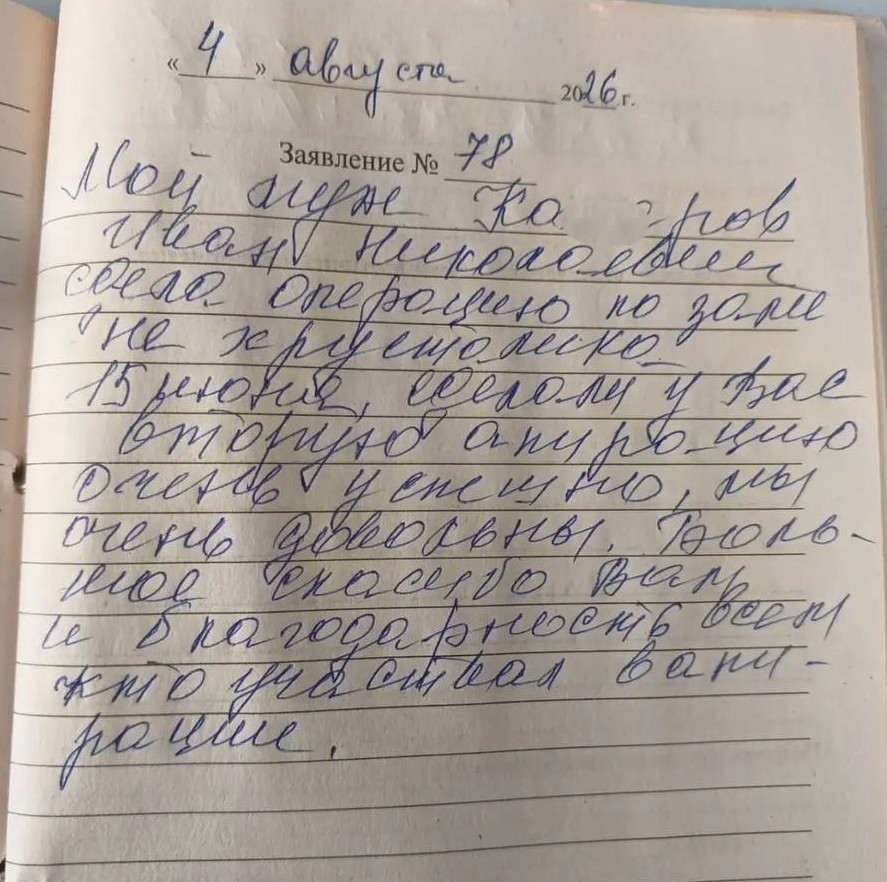 « 4 » августа 2026 г.
Заявление № 78
Мой муж Ка ров
Иван Николаевич
сдела операцию по заме
не хрусталика
15 июня, сделали у Вас
вторую апирацию
очень успешно, мы
очень довольны. Боль-
шое спасибо Вам
и благодарность всем
кто участвал в апи-
рации.